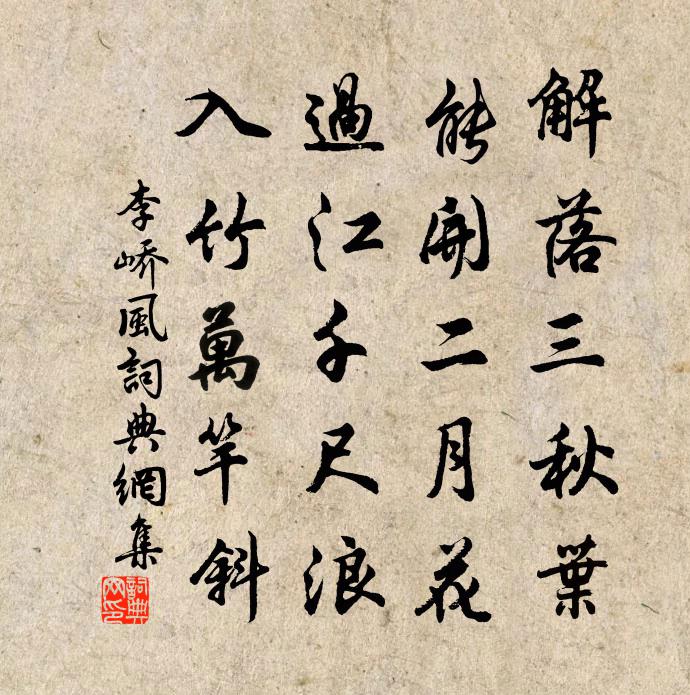 解落三秋葉
能開二月花
過江千尺浪
入竹萬竿斜
李嶠風詞典網集
詞典網印